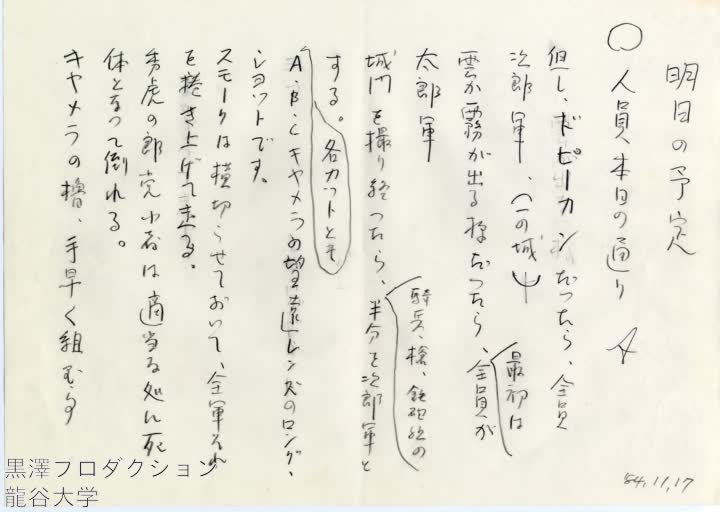 明日の予定
○人員本日の通り
但し、ドピーカンだったら、全員
次郎軍、(一の城)
最初は
雲か霧が出る様だったら、全員が
太郎軍
騎兵、槍、鉄砲組の
城門を撮り終ったら、半分を次郎軍と
する。各カットとも
A・B・Cキャメラの望遠レンズのロング・
ショットです。
スモークは横切らせておいて、全軍それ
を捲き上げて走る。
秀虎の郎党小者は適当な処に死
体となって倒れる。
キャメラの櫓、手早く組む事
54.11.17
黒澤プロダクション
龍谷大学